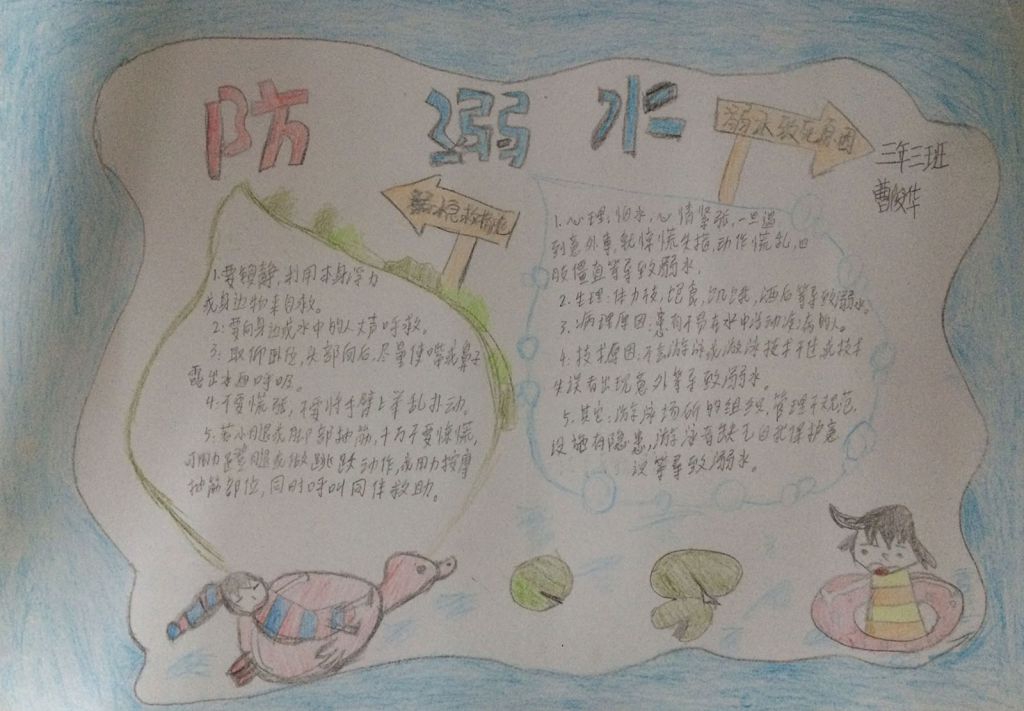 防溺水
溺水致死原因
三年三班
曹
1. 要镇静,利用本身浮力
或身边物来自救。
2: 要向身边或水中的人大声呼救。
3: 取仰卧位,头部向后,尽量使嘴或鼻子
露出水面呼吸。
4: 不要慌张,不要将手臂上举乱扑动。
5: 若小腿或脚部抽筋,千万不要惊慌,
可用力蹬腿或做跳跃动作,或用力按摩
抽筋部位,同时呼叫同伴救助。
1. 心理,怕水,心情紧张,一旦遇
到意外事,就惊慌失措,动作慌乱,四
肢僵直等导致溺水,
2. 生理:体力,饱食,饥饿,酒后等导致溺水。
3. 病理原因:患有不易在水中活动疾病的人。
4. 技术原因:不会游泳或游泳技术不佳或技术
失误者出现意外等导致溺水。
5. 其它:游泳场所的组织,管理不规范,
设施有隐患,游泳者缺乏自我保护意
识等导致溺水。